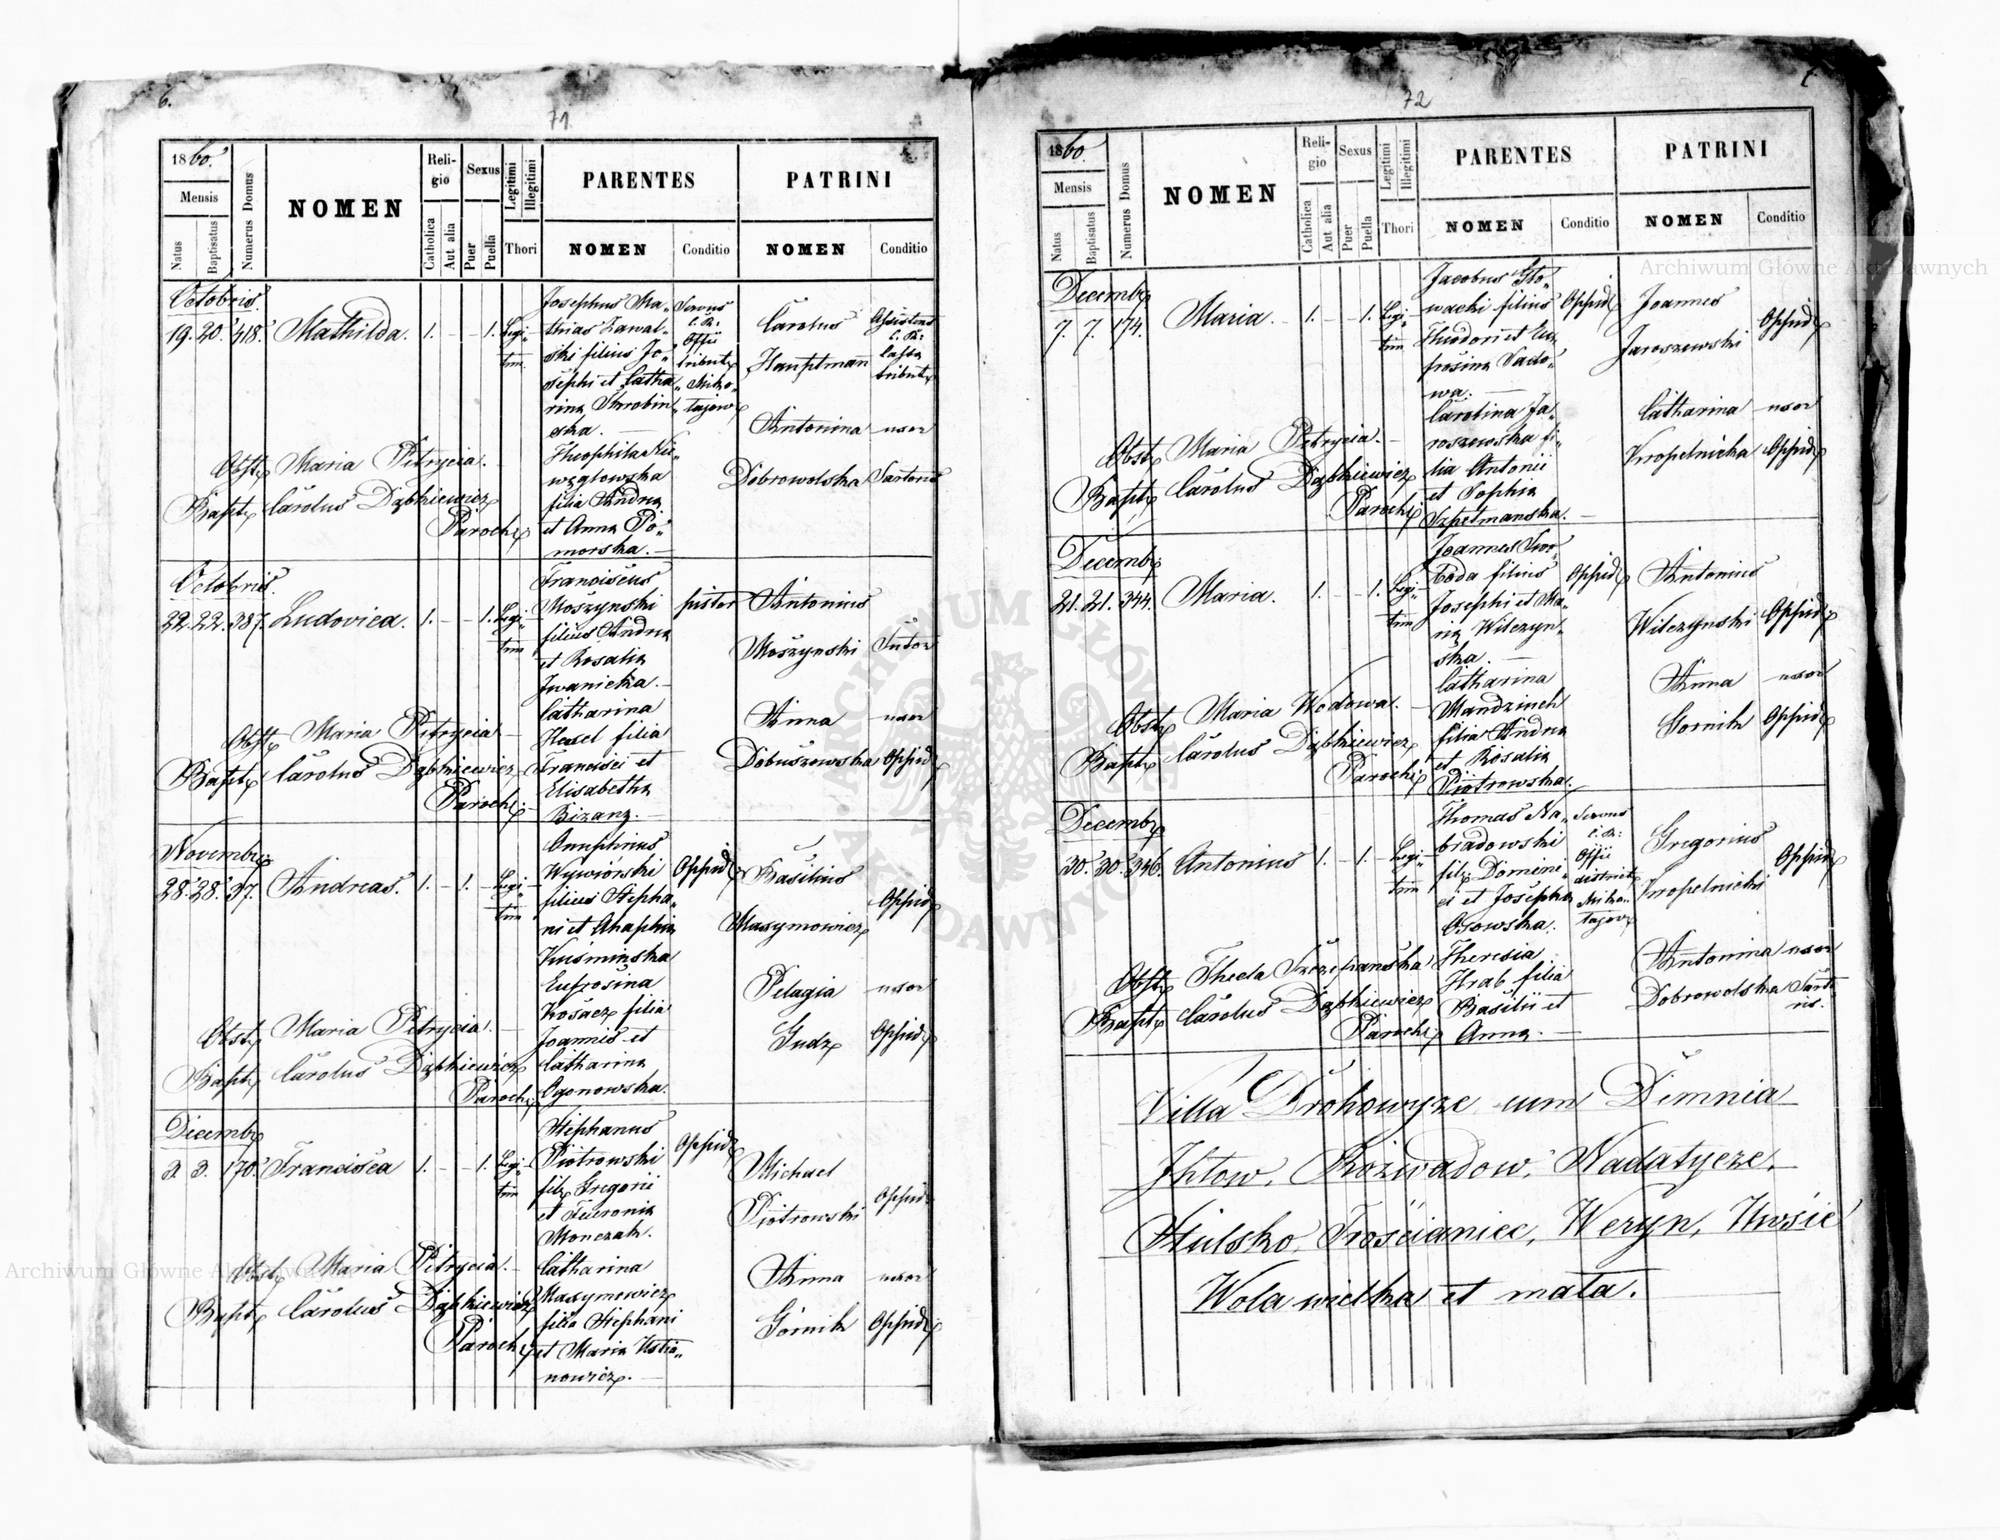 6.
71.
1860.
Mensis
Natus
Baptisatus
Numerus Domus
NOMEN
Religio
Catholica
Aut alia
Sexus
Puer
Puella
Legitimi
Illegitimi
Thori
PARENTES
NOMEN
Conditio
PATRINI
NOMEN
Conditio
Octobris.
19. 20. 418. Mathilda. 1. - - 1. Legi-
tim.
Josephus Ma-
thias Zawal-
ski filius Jo-
sephi et Catha-
rina
ska.
Theophila Nie-
węgłowska
filia Andrea
et Anna Po-
morska.
Servus
C. R.
Offii
tribut
Miko-
łajow
Carolus
Hauptman
Assistens
C. R.
Cassa
tribut
Antonina uxor
Dobrowolska Sartoris
Obst Maria Petrycia.
Bapt Carolus Dąbkiewicz
Paroch
Octobris.
22. 22. 387. Ludovica. 1. - - 1. Legi-
tim
Franciscus
Moszynski
filius Andrea
et Rosalia
Iwanicka.
Catharina
Hesel filia
Francisci et
Elisabetha
Bizanz.
pistor
Antonius
Moszynski Sutor
Anna uxor
Dobuszowska Oppid
Obst Maria Petrycia
Bapt Carolus Dąbkiewicz
Paroch.
Novembr
28. 28. 37. Andreas. 1. - 1. - Legi-
tim
Onuphrius
Wywiórski
filius Stepha-
ni et Ahaphia
Kuśminska
Eufrosina
Kosacz filia
Joannis et
Catharina
Ogonowska.
Oppid
Basilius
Maxymowicz
Oppid
Pelagia uxor
Gudz Oppid
Obst Maria Petrycia.
Bapt Carolus Dąbkiewicz
Paroch.
Decembr
3. 3. 170. Francisca 1. - - 1. Legi-
tim
Stephanus
Piotrowski
fil Gregorii
et Feuronia
Monczak.
Catharina
Maxymowicz
filia Stephani
et Maria Ustia-
nowicz.
Oppid
Michael
Piotrowski
Oppid
Anna uxor
Górnik Oppid
Obst Maria Petrycia.
Bapt Carolus Dąbkiewicz
Paroch
72
1860.
Mensis
Natus
Baptisatus
Numerus Domus
NOMEN
Religio
Catholica
Aut alia
Sexus
Puer
Puella
Legitimi
Illegitimi
Thori
PARENTES
NOMEN
Conditio
PATRINI
NOMEN
Conditio
Decembr
7. 7. 174. Maria. 1. - - 1. Legi-
tim
Jacobus Sło-
wacki filius
Theodori et Eu-
frosina Sado-
wa.
Carolina Ja-
roszewska fi-
lia Antonii
et Sophia
Szpetmanska.
Oppid
Joannes
Jaroszewski
Oppid
Catharina uxor
Kropelnicka Oppid
Obst Maria Petrycia.
Bapt Carolus Dąbkiewicz
Paroch
Decembr
21. 21. 344. Maria. 1. - - 1. Legi-
tim
Joannes Swo-
boda filius
Josephi et Ma-
ria Wilczyn-
ska.
Catharina
Mandzinck
filia Andrea
et Rosalia
Piotrowska.
Oppid
Antonius
Wilczynski Oppid
Anna uxor
Gornik Oppid
Obst Maria Wodowa.
Bapt Carolus Dąbkiewicz
Paroch
Decembr
30. 30. 346. Antonius 1. - 1. - Legi-
tim
Thomas Na-
bradowski
fil Domini-
ci et Josepha
Osowska.
Theresia
Hrab filia
Basilii et
Anna.
Servus
C. R.
Offii
district
Miko-
łajow
Gregorius
Kropelnicki
Oppid
Antonina uxor
Dobrowolska Sarto-
ris.
Obst Thecla Szczepanska
Bapt Carolus Dąbkiewicz
Paroch
Villa Drohowyze cum Demnia
Ihłow, Rozwadow, Nadatycze,
Stulsko, Trościaniec, Weryn, Uwsie
Wola wielka et mała.
Archiwum Główne Akt Dawnych
Archiwum Główne Akt Dawnych
ARCHIWUM GŁÓWNE AKT DAWNYCH